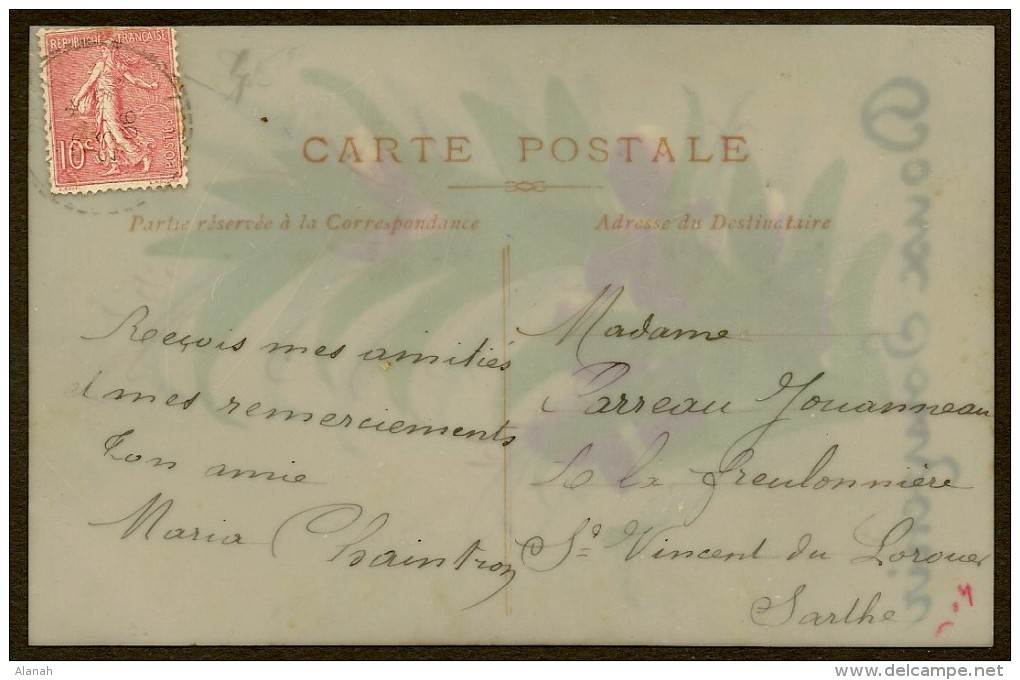 REPUBLIQUE FRANÇAISE
POSTES
10c
CARTE POSTALE
Partie réservée à la Correspondance
Adresse du Destinataire
Reçois mes amitiés
et mes remerciements
Ton amie
Maria Chaintron
Madame
Parreau Jouanneau
de la Freulonnière
St Vincent du Lorouer
Sarthe
Doux Souvenir
Alanah
delcampe.net